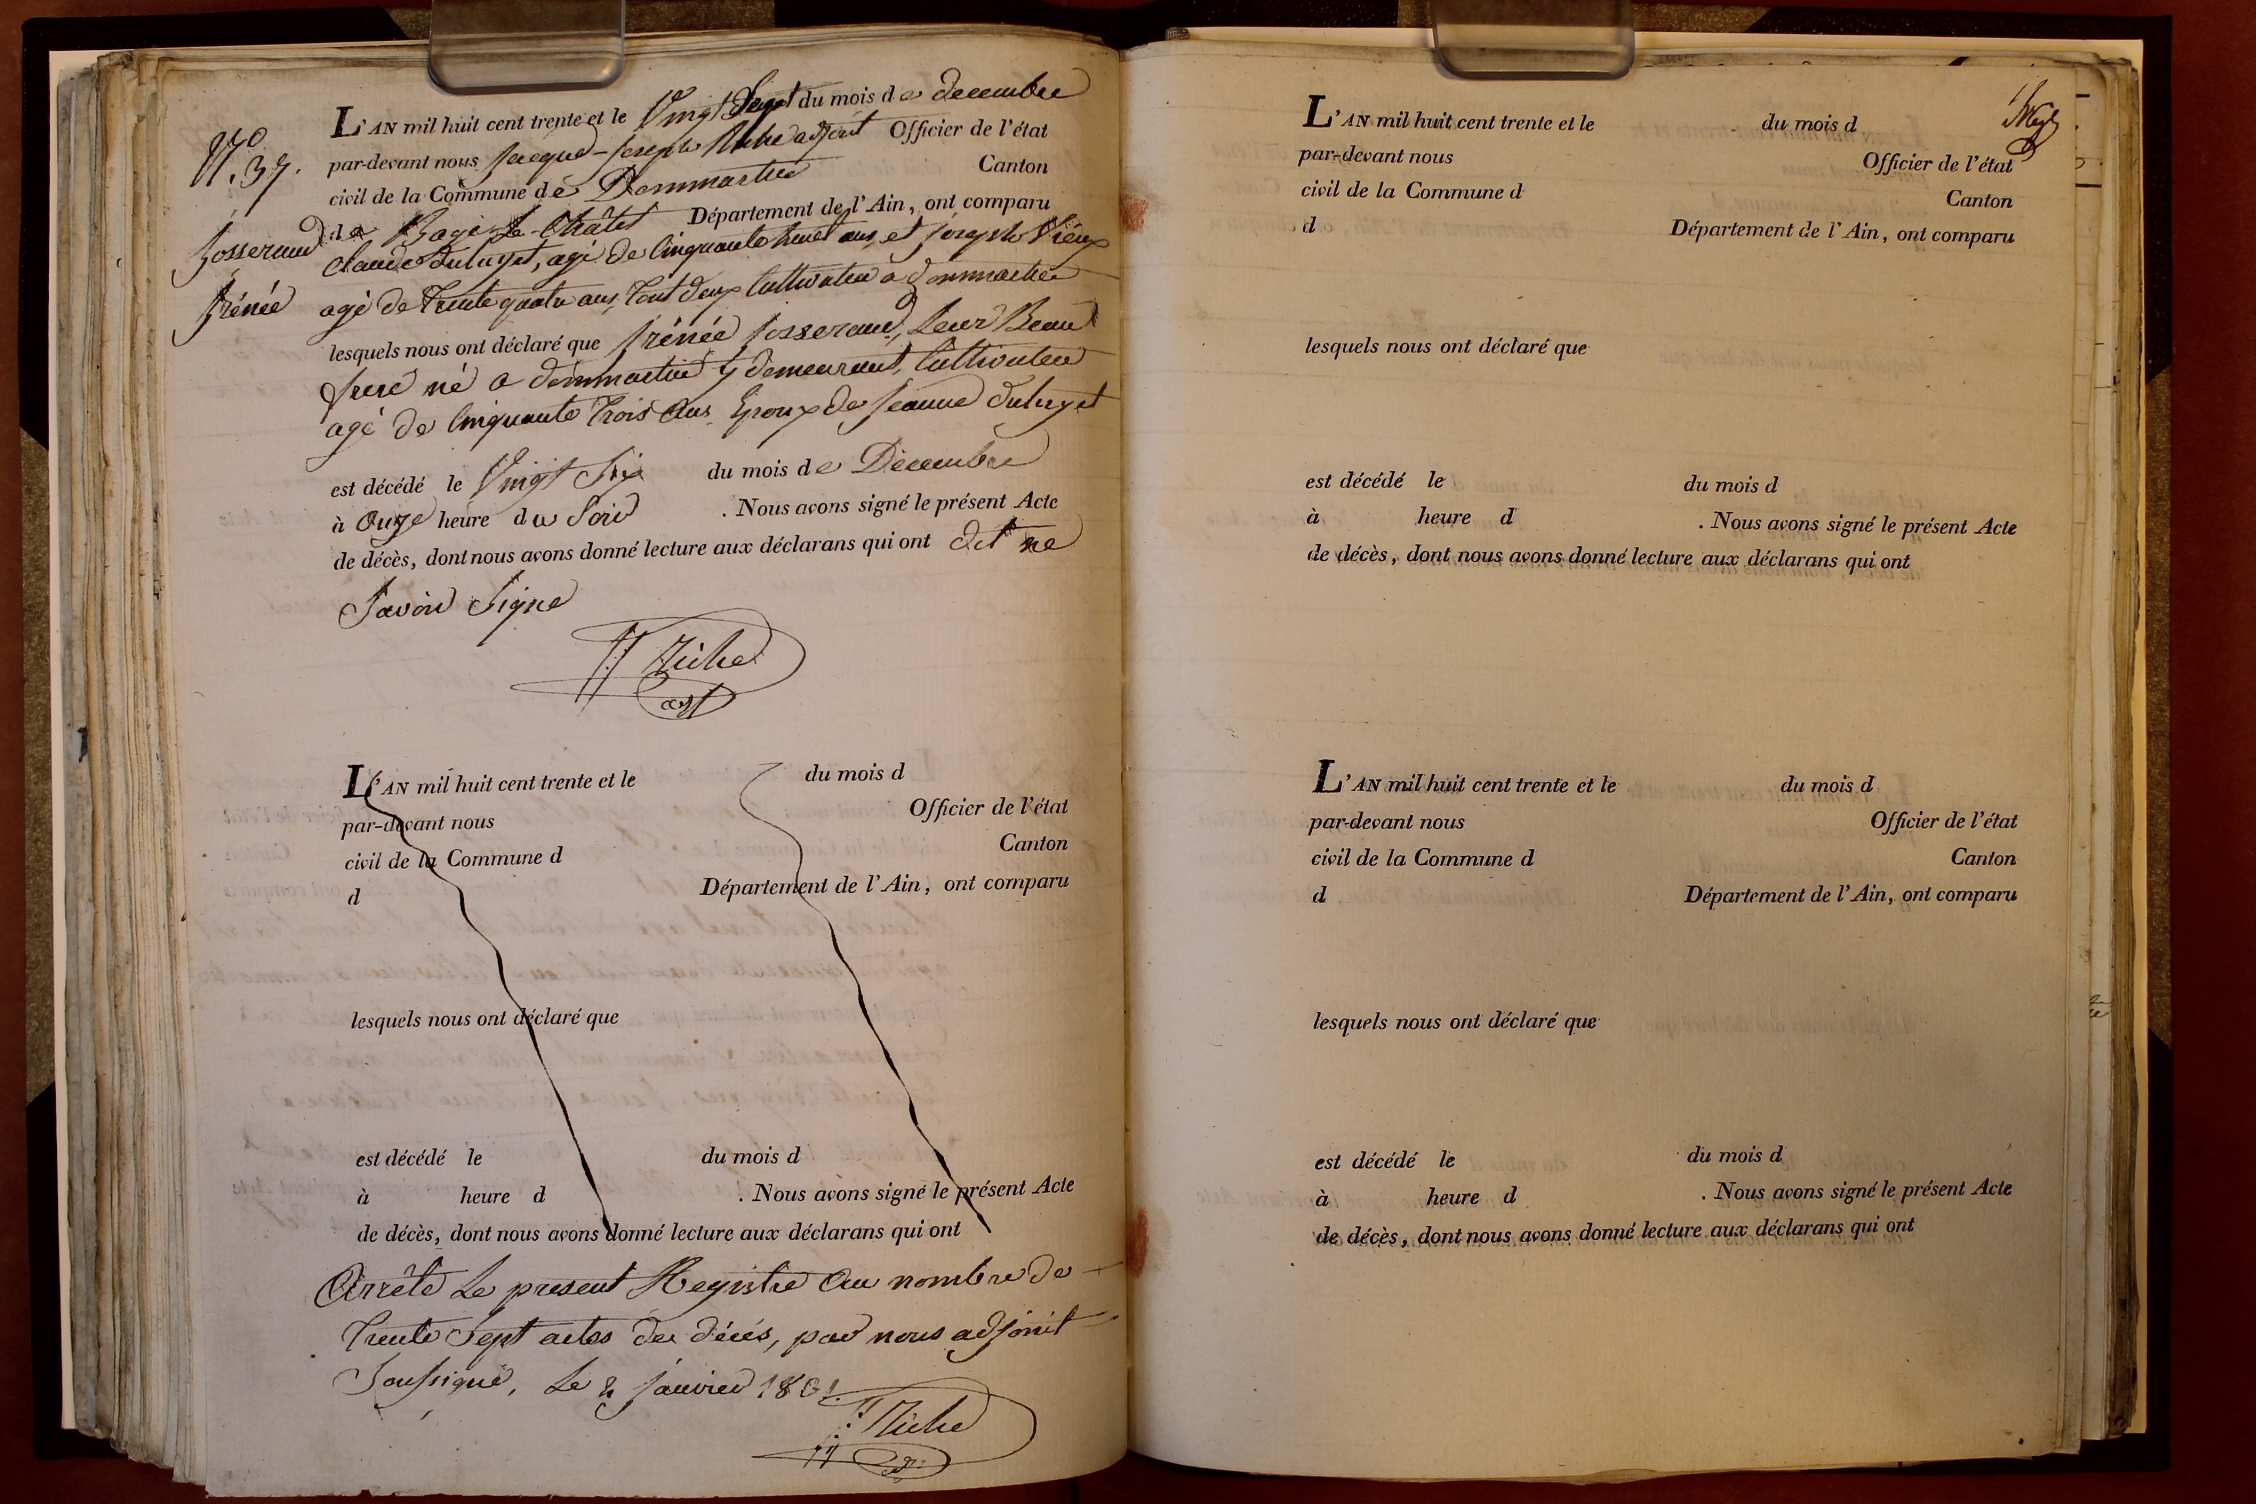 N.o 37.
Josserand
Irénée
L'AN mil huit cent trente et le Vingt Sept du mois de decembre
par-devant nous Jacque-Joseph Riche adjoint Officier de l'état
civil de la Commune de Dommartin Canton
de Bagé-Le-Châtel Département de l'Ain, ont comparu
Claude Duluyet, agé de Cinquante neuf ans, et Joseph Vieux
agé de Trente quatre ans, Tout deux Cultivateur a Dommartin
lesquels nous ont déclaré que Irénée Josserand, Leur Beau
frere né a dommartin y demeurant, Cultivateur
agé de Cinquante Trois Ans Epoux de Jeanne Duluyet
est décédé le Vingt Six du mois de Décembre
à Onze heure du Soir . Nous avons signé le présent Acte
de décès, dont nous avons donné lecture aux déclarans qui ont dit ne
Savoir Signé
JJ Riche
adjt
L'AN mil huit cent trente et le du mois d
par-devant nous Officier de l'état
civil de la Commune d Canton
d Département de l'Ain, ont comparu
lesquels nous ont déclaré que
est décédé le du mois d
à heure d . Nous avons signé le présent Acte
de décès, dont nous avons donné lecture aux déclarans qui ont
Arrêté Le présent Registre Au nombre de
Trente Sept actes de décés, par nous adjoint
Soussigné, Le 2 Janvier 1831
JJ Riche
L'AN mil huit cent trente et le du mois d
par-devant nous Officier de l'état
civil de la Commune d Canton
d Département de l'Ain, ont comparu
lesquels nous ont déclaré que
est décédé le du mois d
à heure d . Nous avons signé le présent Acte
de décès, dont nous avons donné lecture aux déclarans qui ont
L'AN mil huit cent trente et le du mois d
par-devant nous Officier de l'état
civil de la Commune d Canton
d Département de l'Ain, ont comparu
lesquels nous ont déclaré que
est décédé le du mois d
à heure d . Nous avons signé le présent Acte
de décès, dont nous avons donné lecture aux déclarans qui ont